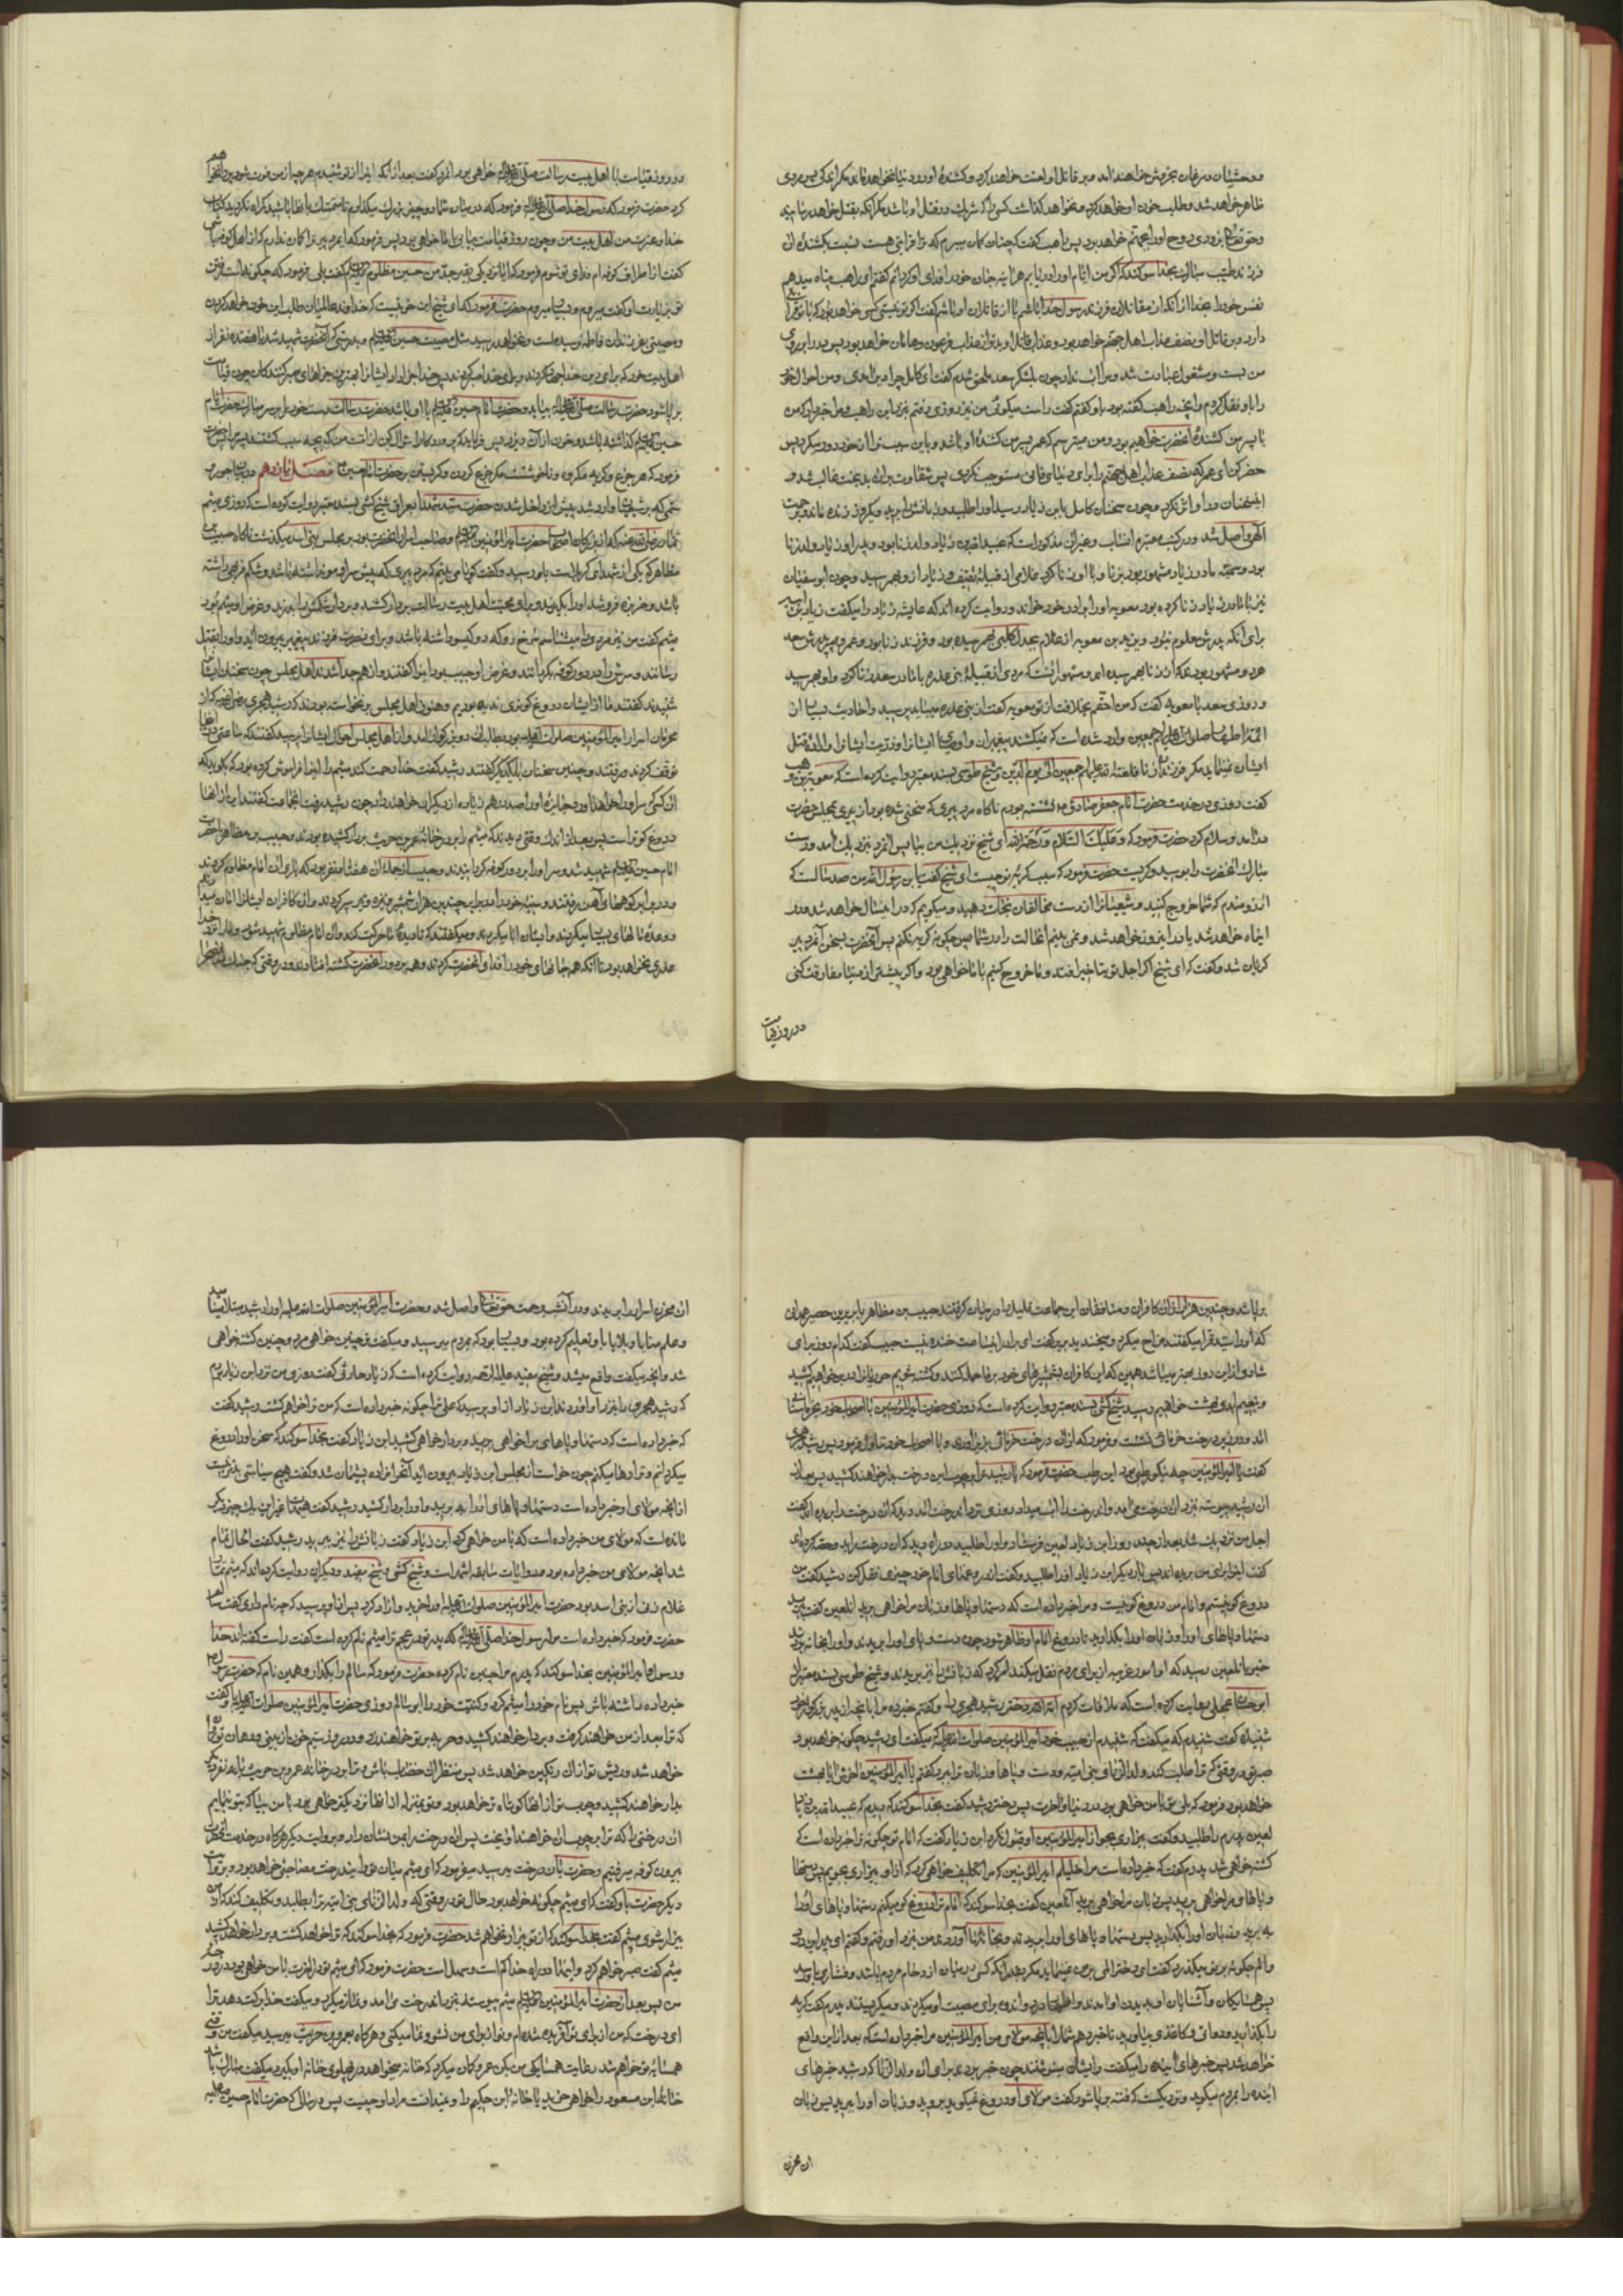 و وحشیان و مرغان بخروش خواهند آمد و بر قاتل او لعنت خواهند کرد و کشندهٔ او در دنیا نخواهد ماند مگر اندکی پس مردی
ظاهر خواهد شد و طلب خون او خواهد کرد و نخواهد گذاشت کسی را که شریک در قتل او باشد مگر آنکه بقتل خواهد رسانید
و حق تعالی بزودی روح او را بجهنم خواهد برد پس راهب گفت که چنان گمان میبرم که ترا قرابتی هست نسبت بکشندهٔ آن
فرزند طیب مبارک بخدا سوگند که اگر من ایام او را دریابم هرآینه جان خود را فدای او گردانم گفتم ای راهب پناه میدهم
نفس خود را بخدا از آنکه از مقاتلان فرزند رسول خدا باشم یا از قاتلان او باشم گفت اگر تو نیستی کسی خواهد بود که با تو قرابتی
دارد و بر قاتل او نصف عذاب اهل جهنم خواهد بود و عذاب قاتل او بدتر از عذاب فرعون و هامان خواهد بود پس در را بر روی
من بست و مشغول عبادت شد و مرا آب نداد چون بلشکر سعد ملحق شدم گفت ای کامل چرا دیر آمدی و من احوال خود
را با او نقل کردم و آنچه راهب گفته بود باو گفتم گفت راست میگوئی من نیز روزی رفتم بنزد این راهب و مرا خبر داد که من
یا پسر من کشندهٔ آنحضرت خواهیم بود و من میترسم که عمر پسر من کشندهٔ او باشد و باین سبب ترا از خود دور میکرد پس
حذر کن ای عمر که نصف عذاب اهل جهنم را برای دنیای فانی مستوجب نگردی پس شقاوت بر آن بدبخت غالب شد و
این سخنان در او اثر نکرد و چون سخنان کامل بابن زیاد رسید او را طلبید و زبانش را برید و یکروز زنده ماند و برحمت
الهی واصل شد و در کتب معتبره انساب و غیر آن مذکور است که عبید الله بن زیاد ولد زنا بود و پدر او زیاد ولد زنا
بود و سمیه مادر زیاد مشهور بود بزنا و با او زنا کرد غلامی از قبیلهٔ ثقیف و زیاد از او بهم رسید و چون ابوسفیان
نیز با مادر زیاد زنا کرده بود معویه او را برادر خود خواند و روایت کرده‌اند که عایشه زیاد را میگفت زیاد بن ابیه
برای آنکه پدرش معلوم نبود و یزید بن معویه از غلام بجدل کلبی بهم رسیده بود و فرزند زنا بود و عمر و هم پدرش سعد
هر دو مشهور بودند که از زنا بهم رسیده‌اند و مشهور آنست که مردی از قبیلهٔ بنی عذره با مادر سعد زنا کرد و او بهم رسید
و روزی سعد با معویه گفت که من احقم بخلافت از تو معویه گفت از بنی عذره میباید پرسید و احادیث بسیار از
ائمه اطهار صلوات الله علیهم اجمعین وارد شده است که نمیکشند پیغمبران و اوصیا ایشانرا و ذریت ایشانرا و ارادهٔ قتل
ایشان نمینماید مگر فرزندان زنا فلعنة الله علیهم اجمعین الی یوم الدین و شیخ طوسی بسند معتبر روایت کرده است که معویة بن وهب
گفت روزی در خدمت حضرت امام جعفر صادق ع نشسته بودم ناگاه مرد پیری که منحنی شده بود از پیری بمجلس حضرت
درآمد و سلام کرد حضرت فرمود که و علیک السلام و رحمة الله ای شیخ نزدیک من بیا پس آنمرد بنزدیک آمد و دست
مبارک آنحضرت را بوسید و گریست حضرت فرمود که سبب گریهٔ تو چیست ای شیخ گفت یابن رسول الله من صد سال است که
آرزومندم که شما خروج کنید و شیعیانرا از دست مخالفان نجات دهید و میگویم که در این سال خواهد شد و در
این ماه خواهد شد یا در این روز خواهد شد و نمی بینم آنحالت را در شما پس چگونه گریه نکنم پس آنحضرت بسخن آنمرد پیر
گریان شد و گفت که ای شیخ اگر اجل تو بتاخیر افتد و ما خروج کنیم با ما خواهی بود و اگر پیشتر از دنیا مفارقت کنی
در روز قیامت
در روز قیامت با اهل بیت رسالت صلی الله علیه و آله خواهی بود آنمرد گفت بعد از آنکه اینرا از تو شنیدم هر چه از من فوت شود پروا نخواهم
کرد حضرت فرمود که رسول خدا صلی الله علیه و آله فرمود که در میان شما دو چیز بزرگ میگذارم تا متمسک بآنها باشید گمراه نگردید کتاب
خدا و عترت من اهل بیت من و چون روز قیامت بیائی با ما خواهی بود پس فرمود که ای مرد پیر ترا گمان ندارم که از اهل کوفه باشی
گفت از اطراف کوفه ام فدای تو شوم فرمود که آیا نزدیکی بقبر جد من حسین مظلوم گفت بلی فرمود که چگونه است رفتن
تو بزیارت او گفت میروم و بسیار میروم حضرت فرمود که ای شیخ این خونیست که خداوند عالمیان طلب این خون خواهد کرد
و مصیبتی بفرزندان فاطمه نرسیده است و نخواهد رسید مثل مصیبت حسین و بدرستی که آنحضرت شهید شد با هفده نفر از
اهل بیت خود که برای دین خدا جهاد کردند و برای خدا صبر کردند پس خدا جزا داد ایشانرا بهترین جزاهای صبر کنندگان چون قیامت
برپا شود حضرت رسالت صلی الله علیه و آله بیاید و حضرت امام حسین با او باشد و حضرت رسالت دست خود را بر سر مبارک حضرت امام
حسین گذاشته باشد و خون از آن میریزد پس فرماید که پروردگارا سؤال کن از امت من که بچه سبب کشتند پسر مرا پس حضرت
فرمود که هر جزع و گریه مکروه و ناخوش است مگر جزع کردن و گریستن بر حضرت امام حسین ع فصل یازدهم در بیان جور و
ستمی که بر شیعیان وارد شد پیش از داخل شدن حضرت سید شهدا بعراق شیخ کشی بسند معتبر روایت کرده است که روزی میثم
تمار رضی الله عنه که از بزرگان اصحاب حضرت امیر المؤمنین و صاحب اسرار آنحضرت بود بر مجلس بنی اسد میگذشت ناگاه حبیب بن
مظاهر که یکی از شهدای کربلاست باو رسید و گفت گویا می بینم که مرد پیری که پیش سر او مو نداشته باشد و شکم فربهی داشته
باشد و خربزه فروشد او را بگیرند و برای محبت اهل بیت رسالت بردار کشند و بر دار شکمش را بدرند و غرض او میثم بود
میثم گفت من نیز مردی را میشناسم سرخ رو که دو گیسو داشته باشد و برای نصرت فرزند پیغمبر بیرون آید و او را بقتل
رسانند و سرش را در دور کوفه بگردانند و غرض او حبیب بود این را گفتند و از هم جدا شدند اهل مجلس چون سخنان ایشانرا
شنیدند گفتند ما از ایشان دروغ گوتری ندیده بودیم و هنوز اهل مجلس برنخواسته بودند که رشید هجری رضی الله عنه که از
محرمان اسرار امیر المؤمنین صلوات الله علیه بود بطلب آن دو بزرگوار آمد و از اهل مجلس احوال ایشان را پرسید گفتند که ساعتی در اینجا
توقف کردند و رفتند و چنین سخنان بیکدیگر گفتند رشید گفت خدا رحمت کند میثم را اینرا فراموش کرده بود که بگوید که
آن کسی که سر او را خواهد آورد جایزهٔ او را صد درهم زیاده از دیگران خواهند داد چون رشید رفت آنجماعت گفتند این از آنها
دروغ گوتر است پس بعد از اندک وقتی دیدند که میثم را بر در خانهٔ عمرو بن حریث بردار کشیده بودند و حبیب بن مظاهر با حضرت
امام حسین شهید شد و سر او را بر دور کوفه گردانیدند و حبیب از جملهٔ آن هفتاد نفر بود که یاری آن امام مظلوم کردند
و در برابر کوههای آهن رفتند و سینهٔ خود را در برابر چندین هزار شمشیر و نیزه و تیر سپر کردند و آن کافران ایشانرا امان میدادند
و وعدهٔ مالهای بسیار میکردند و ایشان ابا میکردند و میگفتند که تا دیدهٔ ما حرکت کند و آن امام مظلوم شهید شود ما را نزد خدا
عذری نخواهد بود تا آنکه همه جانهای خود را فدای آنحضرت کردند و همه بر دور آنحضرت کشته افتادند و در وقتی که
برپا شد و چندین هزار از آن کافران و منافقان این جماعت قلیل را در میان گرفتند حبیب بن مظاهر با بریر بن حصیر همدانی
که او را سید قرا میگفتند مزاح میکرد و میخندید بریر گفت ای برادر این ساعت خنده نیست حبیب گفت کدام روز برای
شادی از این روز بهتر میباشد همین که این کافران بشمشیرهای خود بر ما حمله کنند و کشته شویم حوریانرا در بر خواهیم کشید
و بنعیم ابدی بهشت خواهیم رسید شیخ کشی بسند معتبر روایت کرده است که روزی حضرت امیر المؤمنین با اصحاب خود بخرماستانی
آمد و در زیر درخت خرمائی نشست و فرمود که از آن درخت خرمائی بزیر آوردند و با اصحاب خود تناول فرمود پس رشید هجری
گفت یا امیر المؤمنین چه نیکو رطبی بود این رطب حضرت فرمود که یا رشید ترا بر چوب این درخت بردار خواهند کشید پس بعد از
آن رشید پیوسته بنزد آن درخت می آمد و آن درخت را آب میداد روزی بنزد آن درخت آمد دید که آن درخت را بریده‌اند گفت
اجل من نزدیک شد بعد از چند روز ابن زیاد لعین فرستاد و او را طلبید در راه دید که آن درخت را بدو حصه کرده‌اند
گفت اینرا برای من بریده‌اند پس بار دیگر ابن زیاد او را طلبید و گفت از دروغهای امام خود چیزی نقل کن رشید گفت من
دروغ گو نیستم و امام من دروغ گو نیست و مرا خبر داده است که دستها و پاها و زبان مرا خواهی برید آن لعین گفت ببرید
دستها و پاهای او را و زبان او را بگذارید تا دروغ امام او ظاهر شود چون دست و پای او را بریدند و او را بخانه بردند
خبر بآن لعین رسید که او امور غریبه از برای مردم نقل میکند امر کرد که زبانش را نیز بریدند و شیخ طوسی بسند معتبر از
ابو حسان عجلی روایت کرده است که ملاقات کردم امة الله دختر رشید هجری را و گفتم خبر ده مرا بآنچه از پدر بزرگوار خود
شنیدهٔ گفت شنیدم که میگفت که شنیدم از حبیب خود امیر المؤمنین صلوات الله علیه که میگفت ای رشید چگونه خواهد بود
صبر تو در وقتی که ترا طلب کند ولد الزنای بنی امیه و دست و پاها و زبان ترا ببرد گفتم یا امیر المؤمنین آخرش آیا بهشت
خواهد بود فرمود که بلی تو با من خواهی بود در دنیا و آخرت پس دختر رشید گفت بخدا سوگند که دیدم که عبید الله بن زیاد
لعین پدرم را طلبید و گفت بیزاری بجو از امیر المؤمنین او قبول نکرد ابن زیاد گفت که امام تو چگونه ترا خبر داده است که
کشته خواهی شد پدرم گفت که خبر داده است مرا خلیلم امیر المؤمنین که مرا تکلیف خواهی کرد که از او بیزاری بجویم پس دستها
و پاها و مرا خواهی برید پس زبان مرا خواهی برید آنلعین گفت بخدا سوگند که امام ترا دروغ گو میکنم دستها و پاهای او را
ببرید و زبان او را بگذارید پس دستها و پاهای او را بریدند و بخانهٔ ما آوردند من بنزد او رفتم و گفتم ای پدر این درد
و الم چگونه بر تو میگذرد گفت ای دختر المی بر من نمینماید مگر بقدر آنکه کسی در میان ازدحام مردم باشد و فشاری باو رسد
پس همسایگان و آشنایان او بدیدن او آمدند و اظهار درد و اندوه برای مصیبت او میکردند و میگریستند پدرم گفت گریه
را بگذارید و دواتی و کاغذی بیاورید تا خبر دهم شما را بآنچه مولای من امیر المؤمنین مرا خبر داده است که بعد از این واقع
خواهد شد پس خبرهای آینده را میگفت و ایشان مینوشتند چون خبر بردند برای آن ولد الزنا که رشید خبرهای
آینده را بمردم میگوید و نزدیک است که فتنه برپا شود گفت مولای او دروغ نمیگوید بروید و زبان او را ببرید پس زبان
آن مخزن
آن مخزن اسرار را بریدند و در آنشب برحمت حق تعالی واصل شد و حضرت امیر المؤمنین صلوات الله علیه او را رشید مبتلا مینامید
و علم منایا و بلایا باو تعلیم کرده بود و بسیار بود که بمردم میرسید و میگفت تو چنین خواهی مرد و چنین کشته خواهی
شد و آنچه میگفت واقع میشد و شیخ مفید علیه الرحمه روایت کرده است که زیاد حارثی گفت روزی من نزد ابن زیاد بودم
که رشید هجری را بنزد او آوردند ابن زیاد از او پرسید که علی ترا چگونه خبر داده است که من ترا خواهم کشت رشید گفت
که خبر داده است که دستها و پاهای مرا خواهی برید و بردار خواهی کشید ابن زیاد گفت بخدا سوگند که سخن او را دروغ
میگردانم و ترا رها میکنم چون خواست از مجلس ابن زیاد بیرون آید آن حرامزاده پشیمان شد و گفت هیچ سیاستی بدتر نیست
از آنچه مولای او خبر داده است دستها و پاهای او را ببرید و او را بردار کشید رشید گفت هیهات غیر این یک چیز دیگر
مانده است که مولای من خبر داده است که با من خواهی کرد ابن زیاد گفت زبانش را نیز ببرید رشید گفت الحال تمام
شد آنچه مولای من خبر داده بود و روایات سابقه اشهر است و شیخ کشی و شیخ مفید و دیگران روایت کرده‌اند که میثم تمار
غلام زنی از بنی اسد بود حضرت امیر المؤمنین صلوات الله علیه او را خرید و آزاد کرد پس از او پرسید که چه نام داری گفت سالم
حضرت فرمود که خبر داده است مرا رسول خدا صلی الله علیه و آله که پدر تو در عجم ترا میثم نام کرده است گفت راست گفته‌اند خدا
و رسول و امیر المؤمنین بخدا سوگند که پدرم مرا چنین نام کرده حضرت فرمود که سالم را بگذار و همین نام که حضرت رسول ص
خبر داده داشته باش پس نام خود را میثم کرد و کنیت خود را ابو سالم روزی حضرت امیر المؤمنین صلوات الله علیه باو گفت
که ترا بعد از من خواهند گرفت و بردار خواهند کشید و حربه بر تو خواهند زد و در روز سیم خون از بینی و دهان تو روان
خواهد شد و ریش تو از آن رنگین خواهد شد پس منتظر آن خضاب باش و ترا بر در خانه عمرو بن حریث با نه نفر دیگر
بدار خواهند کشید و چوب تو از آنها کوتاه تر خواهد بود و تو بمنزله از آنها نزدیکتر خواهی بود با من بیا که بتو بنمایم
آن درختی را که ترا بر چوب آن خواهند آویخت پس آن درخت را بمن نشان داد و بروایت دیگر هرگاه در خدمت آنحضرت
بیرون کوفه میرفتیم و حضرت بآن درخت میرسید میفرمود که ای میثم میان تو و این درخت مصاحبتی خواهد بود و بروایت
دیگر حضرت باو گفت که ای میثم چگونه خواهد بود حال تو در وقتی که ولد الزنای بنی امیه ترا بطلبد و تکلیف کند که از من
بیزار شوی میثم گفت بخدا سوگند که از تو بیزار نخواهم شد حضرت فرمود که بخدا سوگند که ترا خواهد کشت و بردار خواهد کشید
میثم گفت صبر خواهم کرد و اینها در راه خدا کم است و سهل است حضرت فرمود که ای میثم تو در آخرت با من خواهی بود در درجهٔ
من پس بعد از حضرت امیر المؤمنین میثم پیوسته بنزد آن درخت می آمد و نماز میکرد و میگفت خدا برکت دهد ترا
ای درخت که من از برای تو آفریده شده‌ام و تو از برای من نشو و نما میکنی و هرگاه بعمرو بن حریث میرسید میگفت من وقتی
همسایهٔ تو خواهم شد رعایت همسایگی من بکن عمرو گمان میکرد که خانه میخواهد در پهلوی خانهٔ او بگیرد میگفت مبارک باشد
خانهٔ ابن مسعود را خواهی خرید یا خانهٔ ابن حکیم را و نمیدانست مراد او چیست پس در سالی که حضرت امام حسین